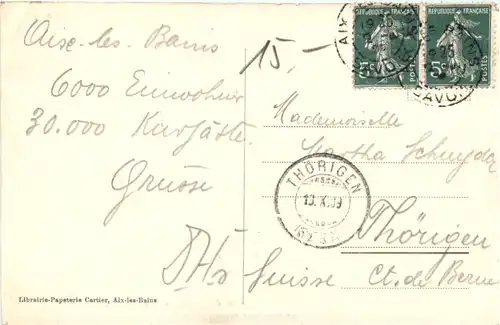 Aix-les-Bains
6000 Einwohner
30.000 Kurgäste
Grüsse
15.-
Mademoiselle
Martha Schnyder
Thörigen
Ct. de Berne
Suisse
THÖRIGEN
AIX
SAVOIE
5c
POSTES
FRANÇAISE
5c
POSTES
Librairie-Papeterie Cartier, Aix-les-Bains